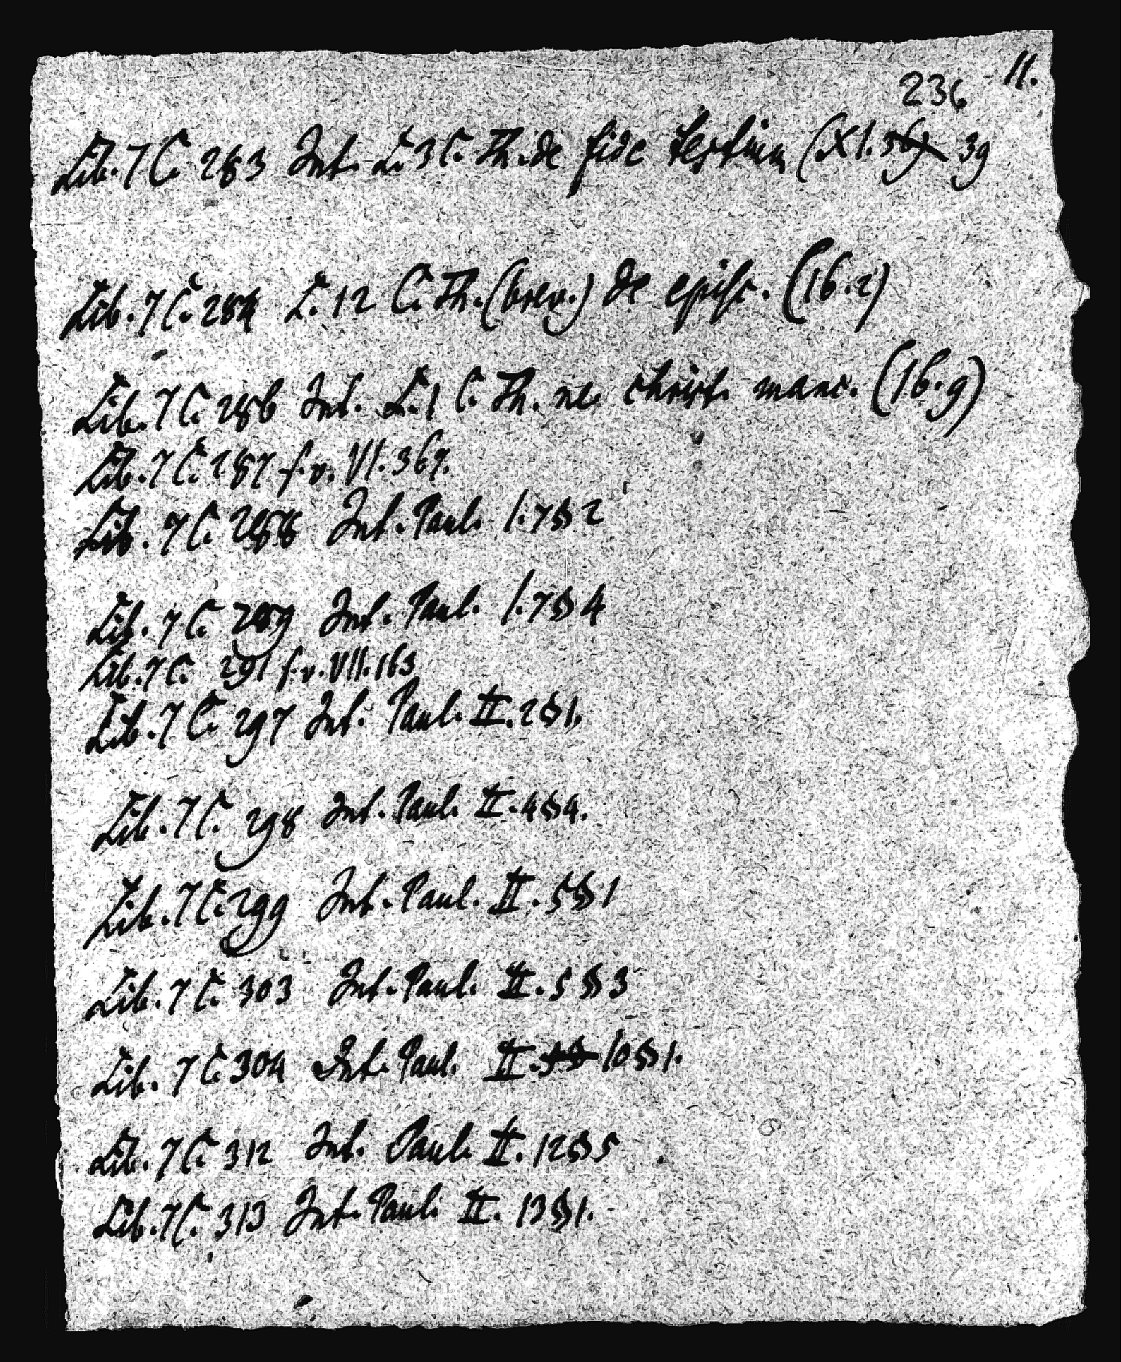 236 11.
Lib. 7 C. 283 Int. L. 3 C. Th. de fide testium (XI. 36) 39
Lib. 7 C. 284 L. 12 C. Th. (brev.) de episc. (16.2)
Lib. 7 C. 286 Int. L. 1 C. Th. ne christ. manc. (16.9)
Lib. 7 C. 287 f. v. VI. 367.
Lib. 7 C. 288 Int. Paul. 1.7 § 2
Lib. 7 C. 289 Int. Paul. 1.7 § 4
Lib. 7 C. 291 f. v. VII. 163
Lib. 7 C. 297 Int. Paul. II. 2 § 1.
Lib. 7 C. 298 Int. Paul. II. 4 § 4.
Lib. 7 C. 299 Int. Paul. II. 5 § 1
Lib. 7 C. 303 Int. Paul. II. 5 § 3
Lib. 7 C. 304 Int. Paul. II. 10 § 1.
Lib. 7 C. 312 Int. Paul. II. 12 § 5
Lib. 7 C. 313 Int. Paul. II. 13 § 1.